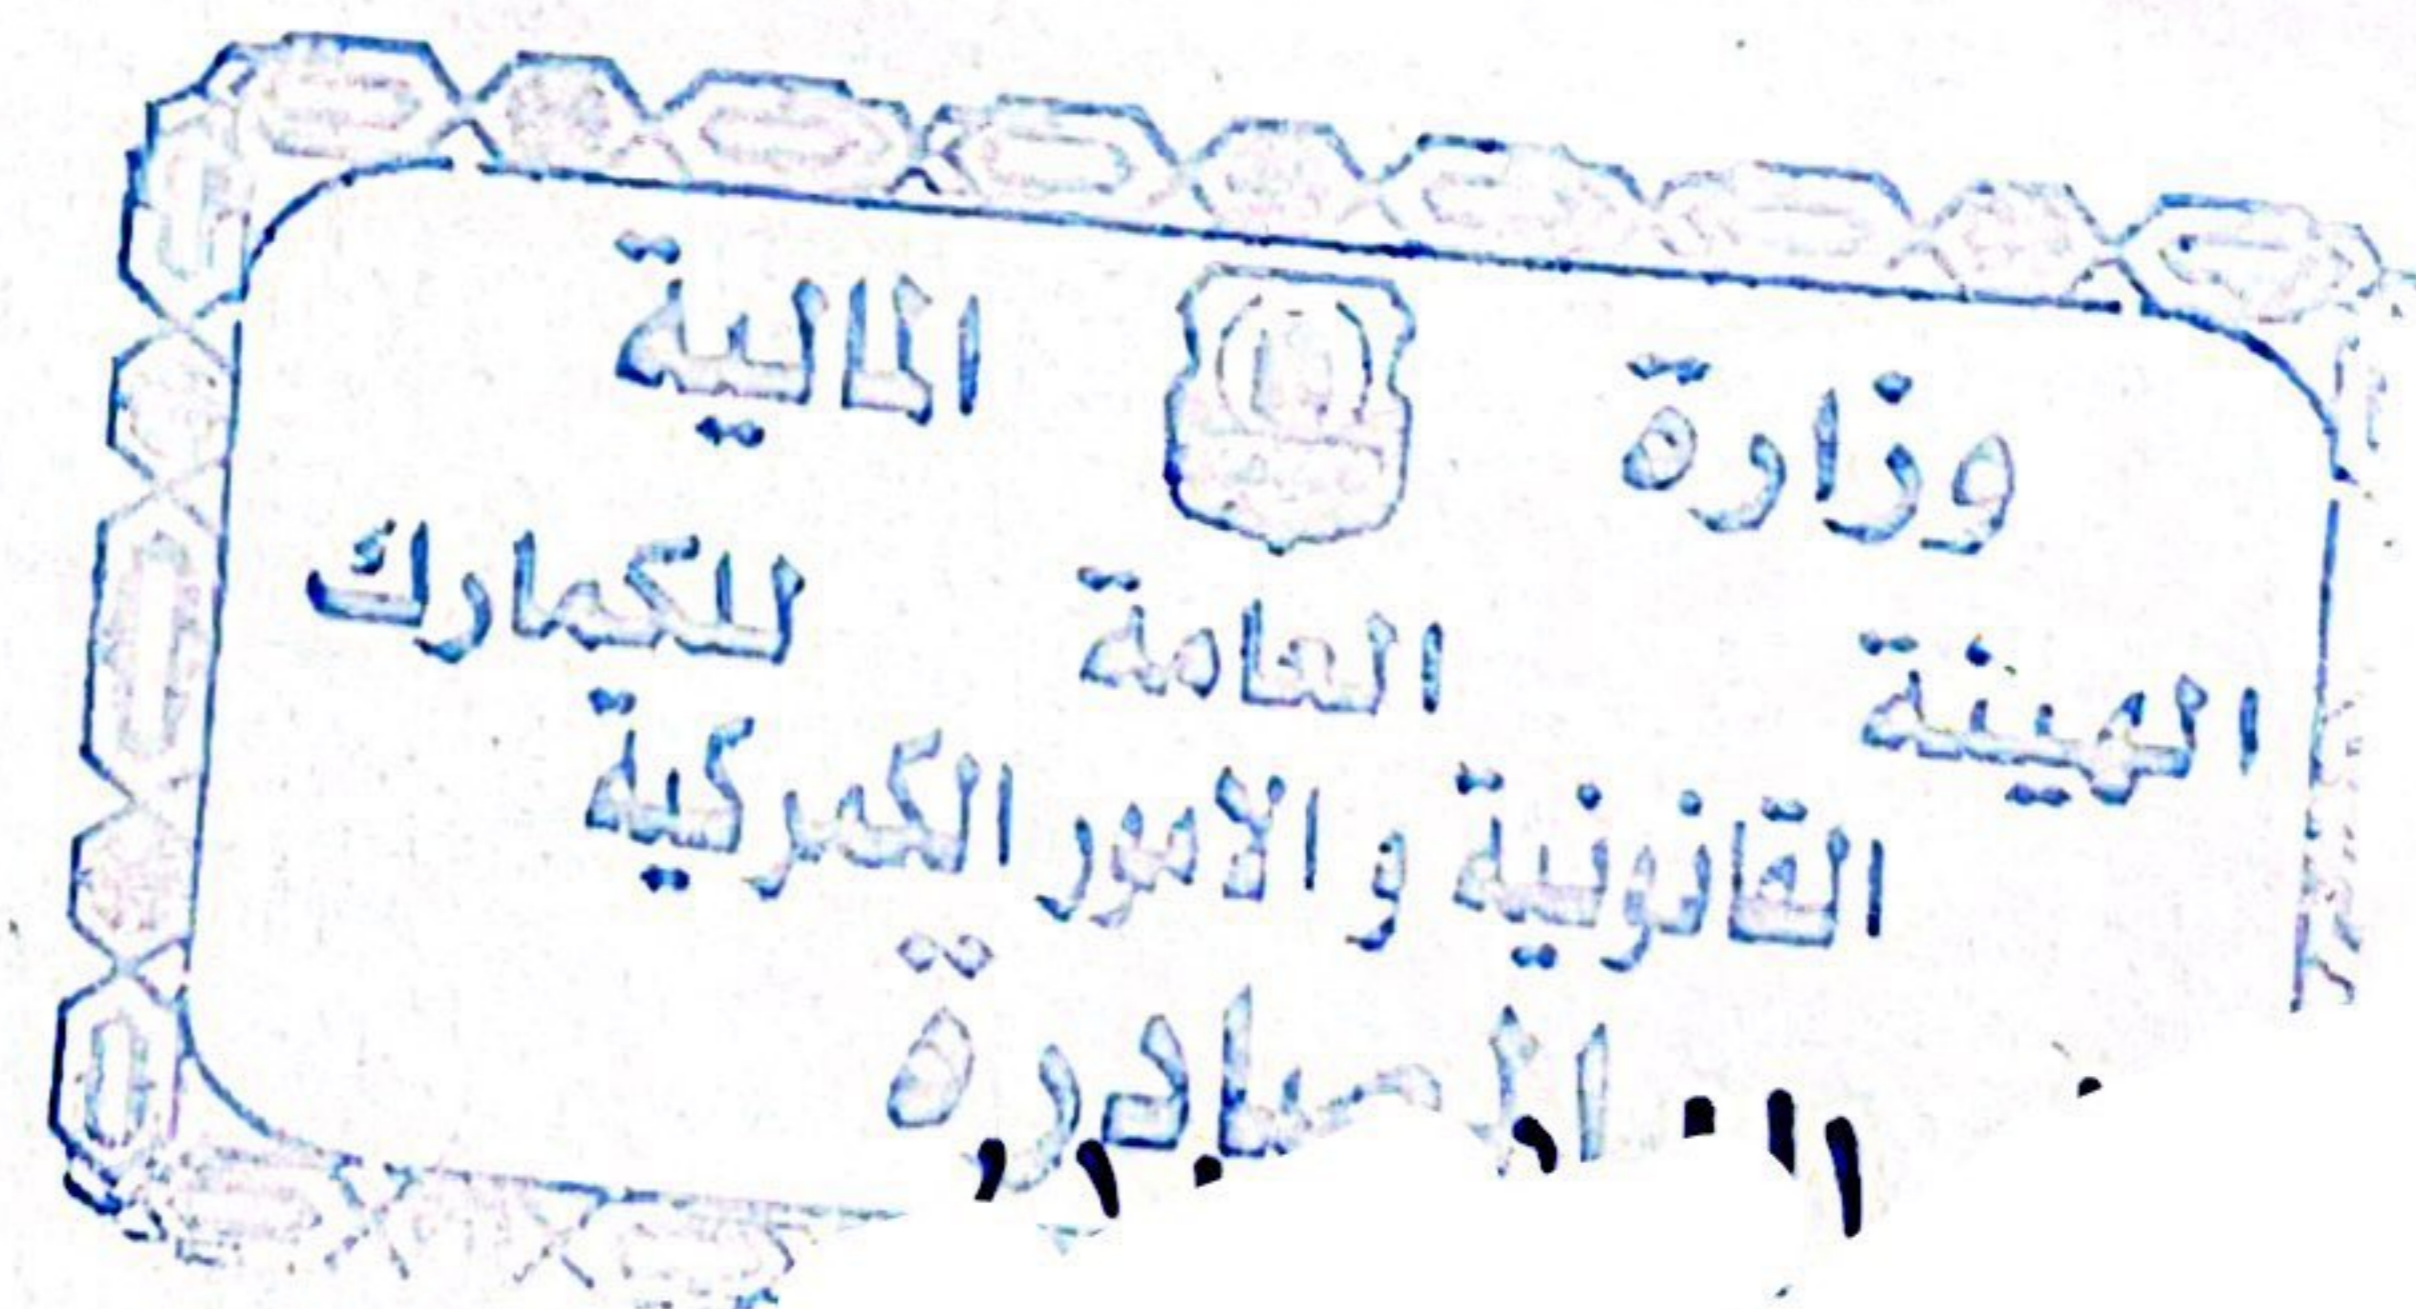 وزارة المالية
الهيئة العامة للكمارك
القانونية و الامور الكمركية
الصادرة